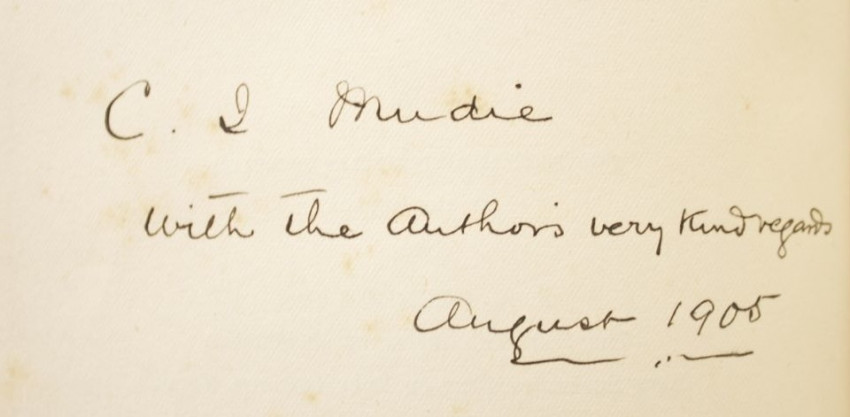 C. I Mudie
With the Author's very kind regards
August 1905